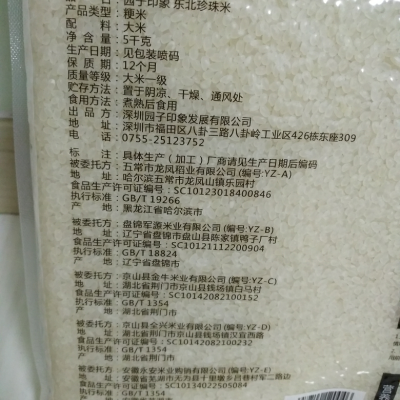 园子印象 东北珍珠米
产品类型：粳米
配 料：大米
净含量：5千克
生产日期：见包装喷码
保 质 期：12个月
质量等级：大米一级
贮存方法：置于阴凉、干燥、通风处
食用方法：煮熟后食用
出 品 方：深圳园子印象发展有限公司
地 址：深圳市福田区八卦三路八卦岭工业区426栋东座309
电 话：0755-25123752
标 注：具体生产（加工）厂商请见生产日期后编码
被委托方：五常市龙凤稻业有限公司(编号:YZ-A)
地 址：哈尔滨五常市龙凤山镇乐园村
食品生产许可证编号：SC10123018400846
执行标准：GB/T 19266
产 地：黑龙江省哈尔滨市
被委托方：盘锦军源米业有限公司(编号:YZ-B)
地 址：辽宁省盘锦市盘山县陈家镇鸭子厂村
食品生产许可证编号：SC10121112200904
执行标准：GB/T 18824
产 地：辽宁省盘锦市
被委托方：京山县金牛米业有限公司(编号:YZ-C)
地 址：湖北省荆门市京山县钱场镇白马村
食品生产许可证编号：SC10142082100152
执行标准：GB/T 1354
产 地：湖北省荆门市
被委托方：京山县全兴米业有限公司(编号:YZ-D)
地 址：湖北省荆门市京山县钱场镇汉宜西路
食品生产许可证编号：SC10142082100232
执行标准：GB/T 1354
产 地：湖北省荆门市
被委托方：安徽永安米业购销有限公司(编号:YZ-E)
地 址：安徽省芜湖市无为县十里墩乡吕巷村军二路边
食品生产许可证编号：SC10134022505084
执行标准：GB/T 1354
营